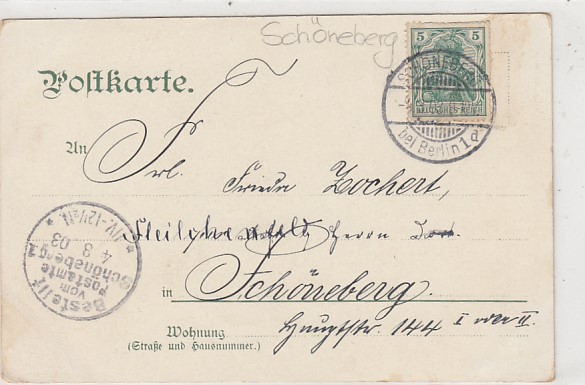 Schöneberg
Postkarte.
5 5
DEUTSCHES REICH
SCHÖNEBERG
bei Berlin 1 d
An
Frl. Frieda Zochert,
Herrn
in Schöneberg.
Hauptstr. 144 I oder II.
Wohnung
(Straße und Hausnummer.)
Bestellt
vom
Postamte
Schöneberg 1
4 8 03